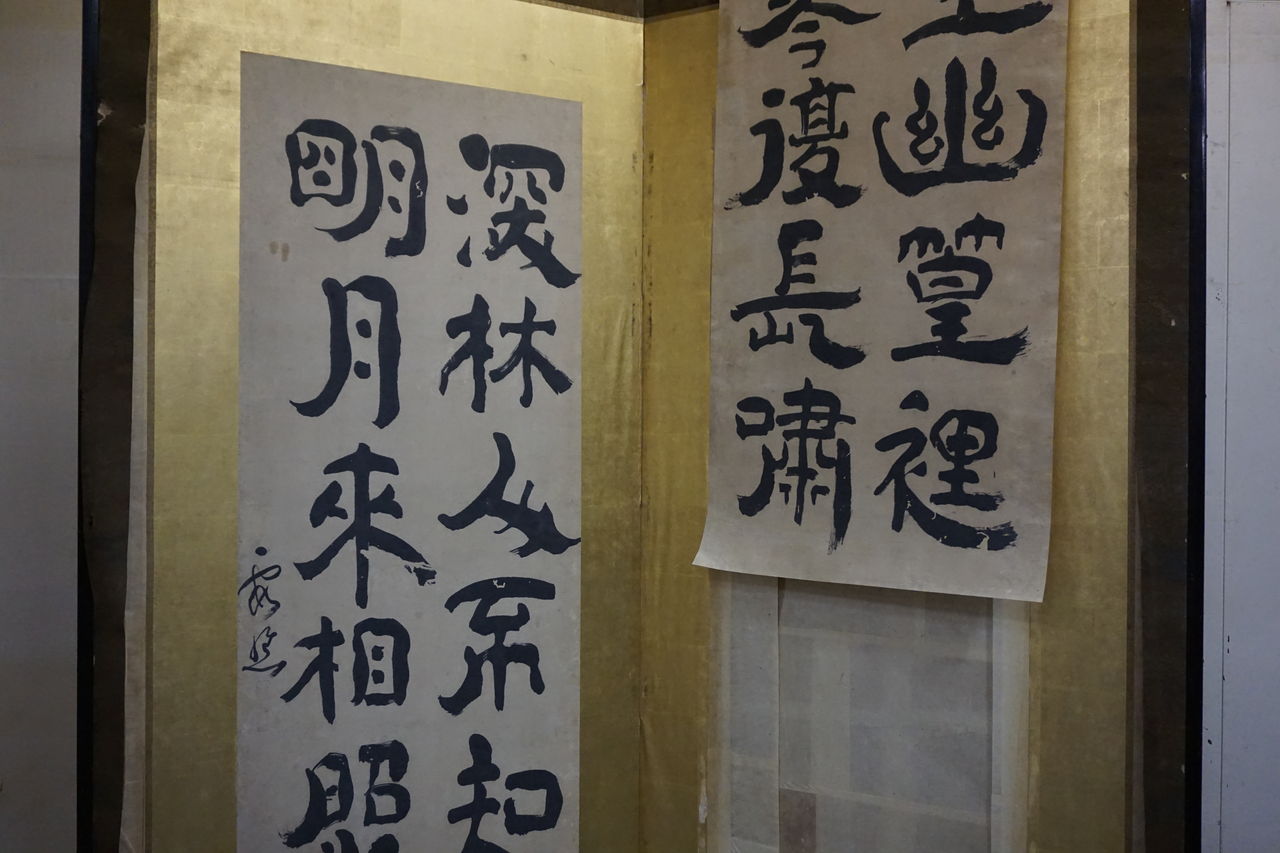 坐幽篁裡
琴復長嘯
深林人不知
明月來相照